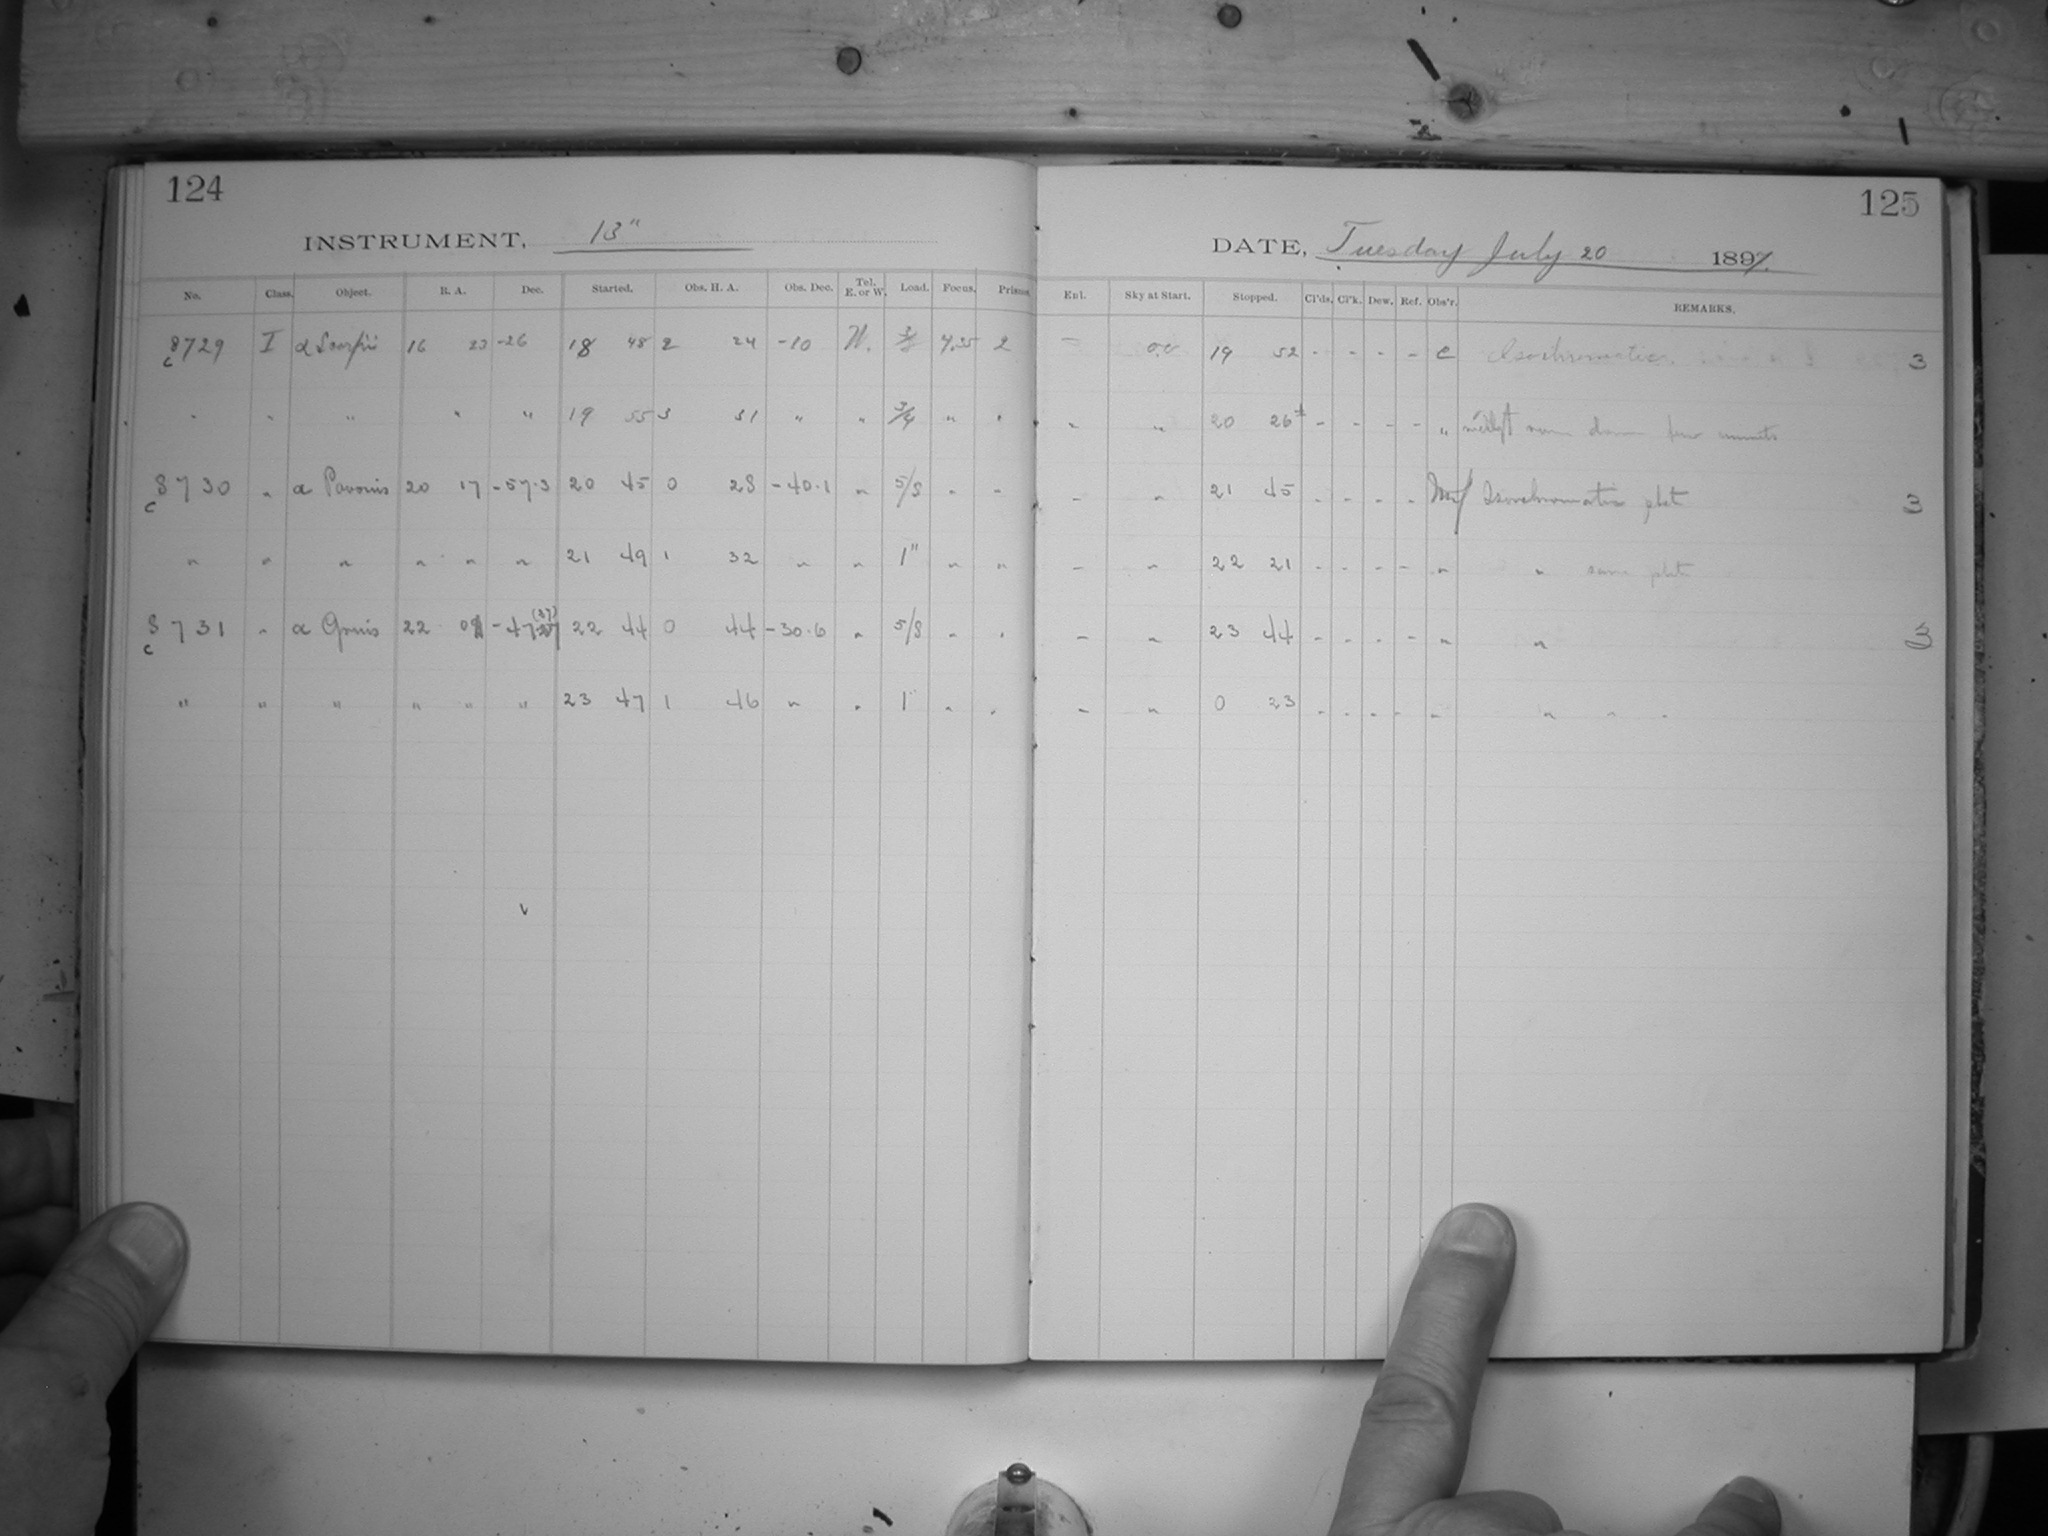 124
INSTRUMENT, 13"
No. Class. Object. R. A. Dec. Started. Obs. H. A. Obs. Dec. Tel. E. or W. Load. Focus. Prisms
8729 I α Scorpii 16 23 -26 18 48 2 24 -10 W. 4.25 2
" " " " " 19 55 3 31 " " 3/4 " "
8730 " α Pavonis 20 17 -57.3 20 45 0 28 -40.1 " 5/8 " "
" " " " " " 21 49 1 32 " " 1" " "
8731 " α Gruis 22 22 44 0 44 -30.6 " 5/8 " "
" " " " " " 23 47 1 46 " " 1 " "
c
c
c
125
DATE, Tuesday July 20 1897.
Enl. Sky at Start. Stopped. Cl'ds. Cl'k. Dew. Ref. Obs'r. REMARKS.
- 19 52 - - - - C Isochromatic. 3
" " 20 26± - - - - " down few
- " 21 45 - - - - Isochromatic plate 3
- " 22 21 - - - - " " same plate
- " 23 44 - - - - " " 3
- " 0 23 - - - - " " " "